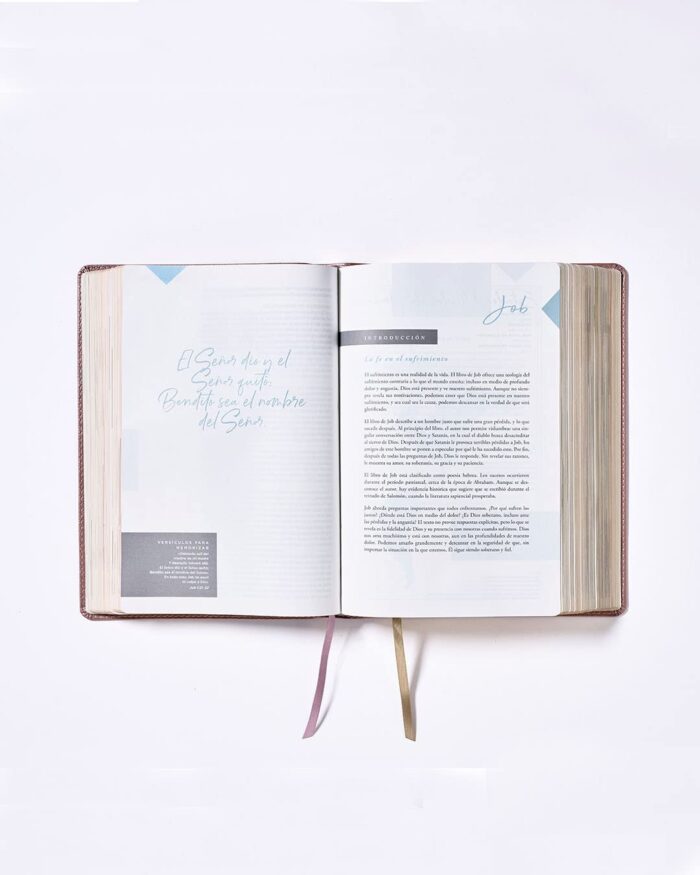 El Señor dio y el
Señor quitó.
Bendito sea el nombre
del Señor.
VERSÍCULOS PARA
MEMORIZAR
Job 1:21-22
Job
INTRODUCCIÓN
La fe en el sufrimiento
El sufrimiento es una realidad de la vida. El libro de Job ofrece una teología del
sufrimiento contraria a lo que el mundo enseña: incluso en medio de profundo
dolor y angustia, Dios está presente y ve nuestro sufrimiento. Aunque no siem-
pre revela sus motivaciones, podemos creer que Dios está presente en nuestro
sufrimiento, y sea cual sea la causa, podemos descansar en la verdad de que será
glorificado.
El libro de Job describe a un hombre justo que sufre una gran pérdida, y lo que
sucede después. Al principio del libro, el autor nos permite vislumbrar una sin-
gular conversación entre Dios y Satanás, en la cual el diablo busca desacreditar
al siervo de Dios. Después de que Satanás le provoca terribles pérdidas a Job, los
amigos de este hombre se ponen a especular por qué le ha sucedido esto. Por fin,
después de todas las preguntas de Job, Dios le responde. Sin revelar sus razones,
le muestra su amor, su soberanía, su gracia y su paciencia.
El libro de Job está clasificado como poesía hebrea. Los sucesos ocurrieron
durante el período patriarcal, cerca de la época de Abraham. Aunque se des-
conoce el autor, hay evidencia histórica que sugiere que se escribió durante el
reinado de Salomón, cuando la literatura sapiencial prosperaba.
Job aborda preguntas importantes que todos enfrentamos. ¿Por qué sufren los
justos? ¿Dónde está Dios en medio del dolor? ¿Es Dios soberano, incluso ante
las pérdidas y la angustia? El texto no provee respuestas explícitas, pero lo que se
revela es la fidelidad de Dios y su presencia con nosotros cuando sufrimos. Dios
nos ama muchísimo y está con nosotros, aun en las profundidades de nuestro
dolor. Podemos amarlo grandemente y descansar en la seguridad de que, sin
importar la situación en la que estemos, Él sigue siendo soberano y fiel.